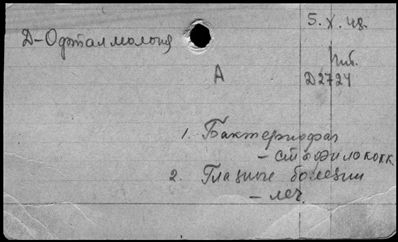 5.X.48.
Д-Офталмология
Пб.
А
Д2724
1. Бактериофаг
- стафилококк
2. Глазные болезни
- леч.